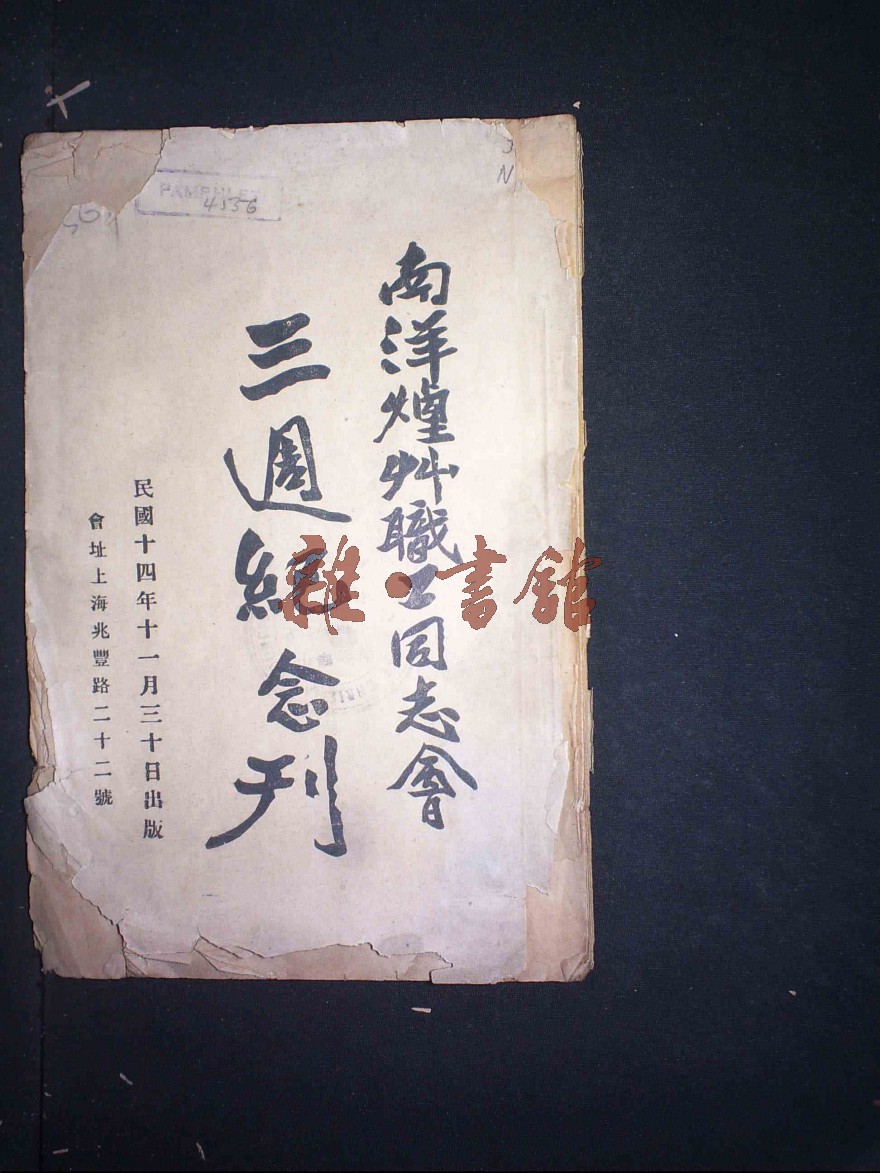 南洋煙艸職工同志會
三週紀念刊
民國十四年十一月三十日出版
會址上海兆豐路二十二號
PAMPHLET
4556
雜·書館